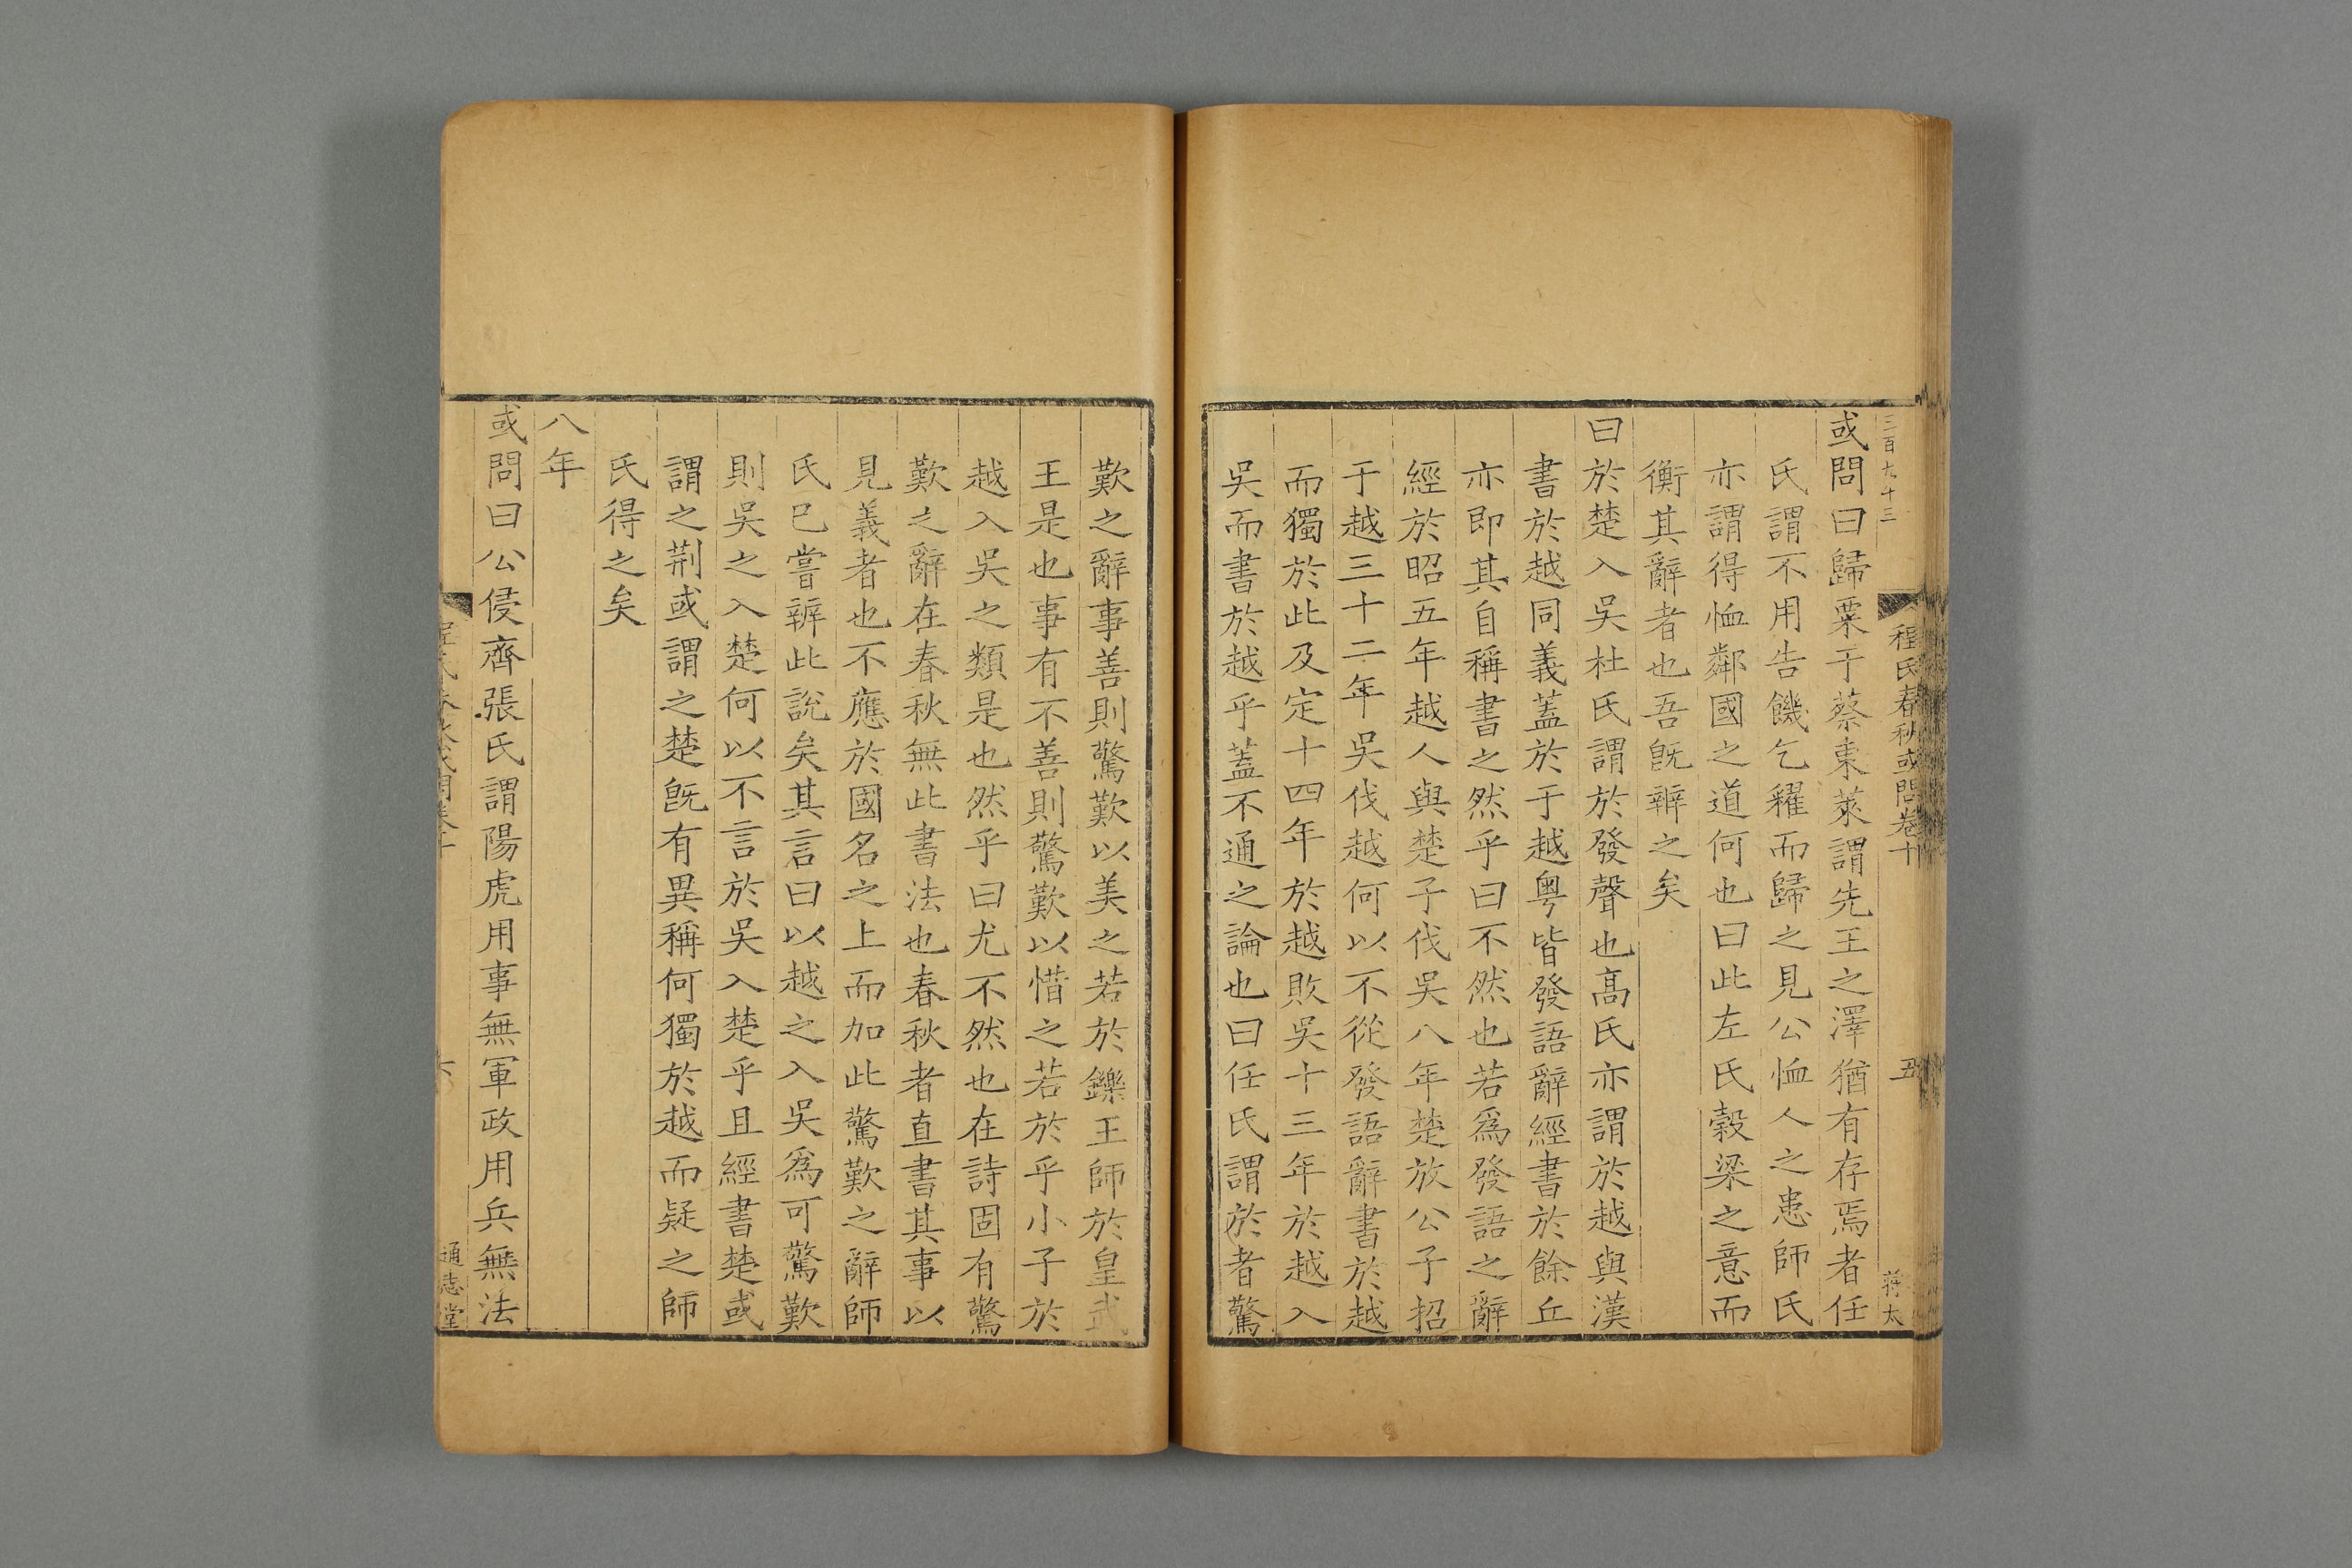 三百九十三
程氏春秋或問卷十
五
蒋太
或問曰歸粟于蔡東萊謂先王之澤猶有存焉者任
氏謂不用告饑乞糴而歸之見公恤人之患師氏
亦謂得恤鄰國之道何也曰此左氏穀梁之意而
衡其辭者也吾旣辨之矣
曰於楚入吳杜氏謂於發聲也高氏亦謂於越與漢
書於越同義蓋於于越粤皆發語辭經書於餘丘
亦即其自稱書之然乎曰不然也若爲發語之辭
經於昭五年越人與楚子伐吳八年楚放公子招
于越三十二年吳伐越何以不從發語辭書於越
而獨於此及定十四年於越敗吳十三年於越入
吳而書於越乎蓋不通之論也曰任氏謂於者驚
歎之辭事善則驚歎以美之若於鑠王師於皇武
王是也事有不善則驚歎以惜之若於乎小子於
越入吳之類是也然乎曰尤不然也在詩固有驚
歎之辭在春秋無此書法也春秋者直書其事以
見義者也不應於國名之上而加此驚歎之辭師
氏已嘗辨此說矣其言曰以越之入吳爲可驚歎
則吳之入楚何以不言於吳入楚乎且經書楚或
謂之荆或謂之楚旣有異稱何獨於越而疑之師
氏得之矣
八年
或問曰公侵齊張氏謂陽虎用事無軍政用兵無法
六
通志堂